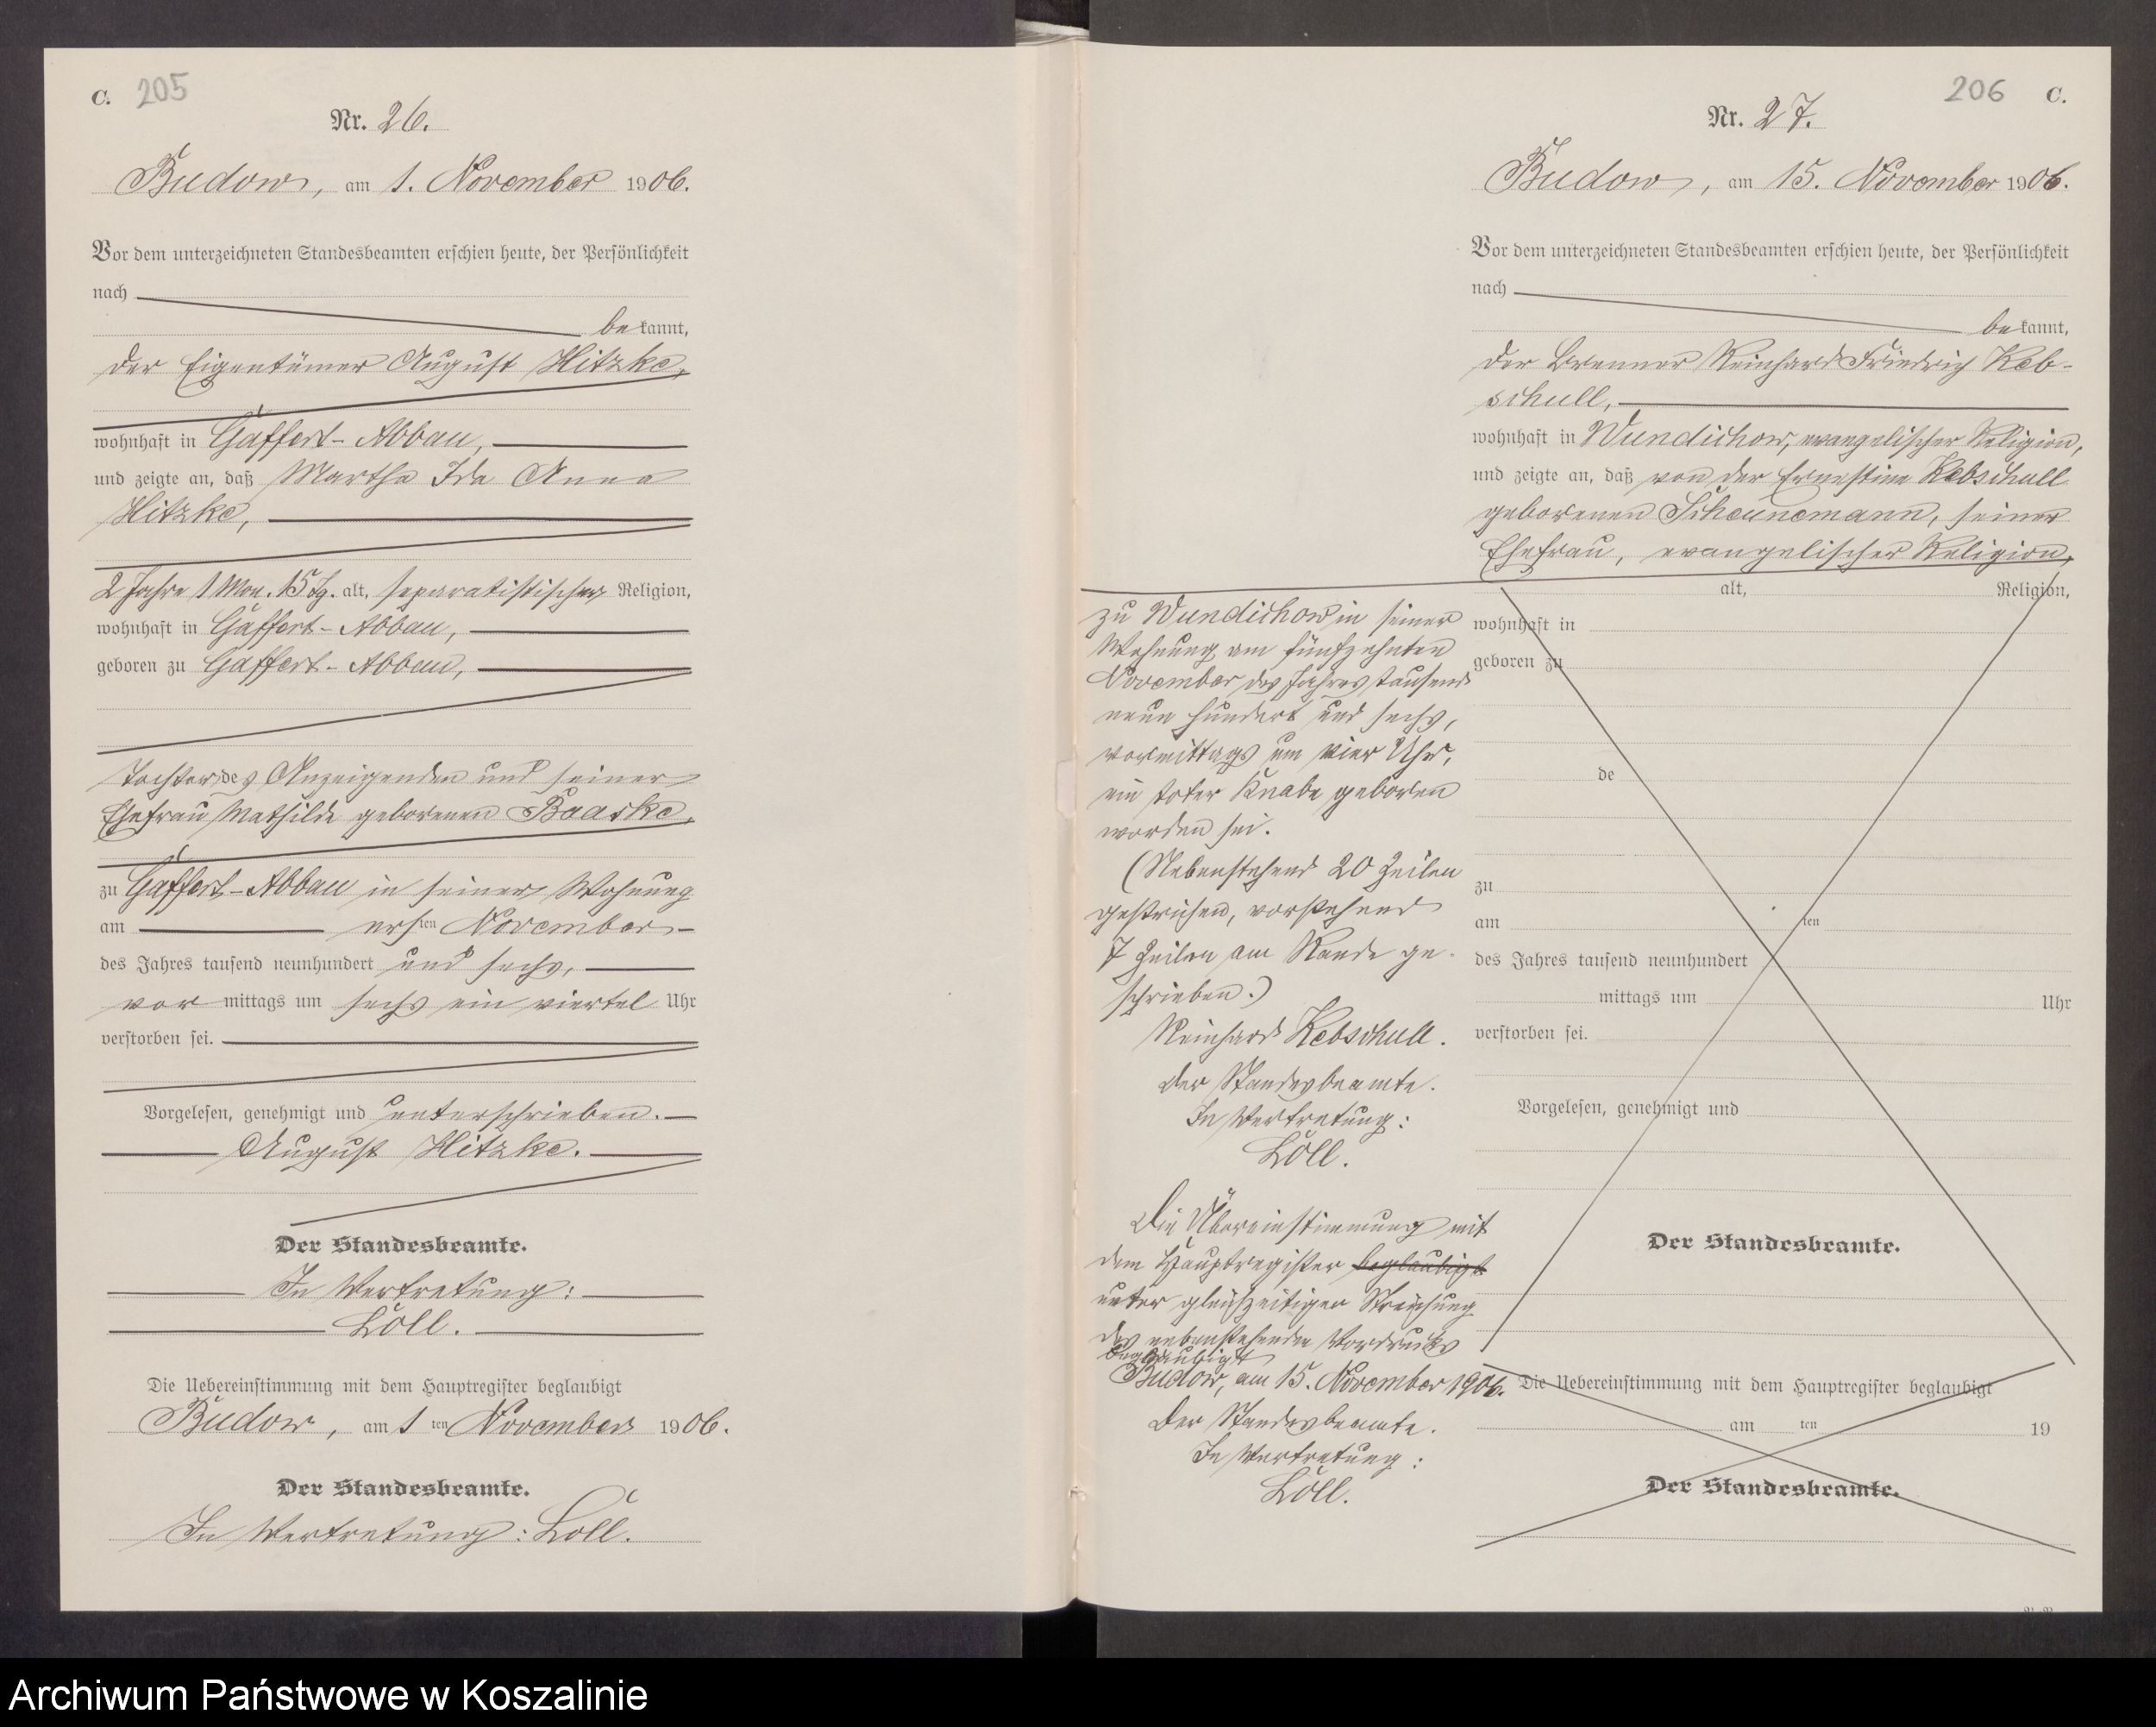 C. 205
Nr. 26.
Budow, am 1. November 1906.
Vor dem unterzeichneten Standesbeamten erschien heute, der Persönlichkeit
nach
bekannt,
der Eigentümer August Hitzke,
wohnhaft in Gaffert-Abbau,
und zeigte an, daß Martha Ida Anna
Hitzke,
2 Jahre 1 Mon. 15 Tg. alt, separatistischer Religion,
wohnhaft in Gaffert-Abbau,
geboren zu Gaffert-Abbau,
Tochter des Anzeigenden und seiner
Ehefrau Mathilde geborenen Baaske,
zu Gaffert-Abbau in seiner Wohnung
am ersten November
des Jahres tausend neunhundert und sechs,
vormittags um sechs ein viertel Uhr
verstorben sei.
Vorgelesen, genehmigt und unterschrieben.
August Hitzke.
Der Standesbeamte.
In Vertretung:
Löll.
Die Uebereinstimmung mit dem Hauptregister beglaubigt
Budow, am 1ten November 1906.
Der Standesbeamte.
In Vertretung: Löll.
206 C.
Nr. 27.
Budow, am 15. November 1906.
Vor dem unterzeichneten Standesbeamten erschien heute, der Persönlichkeit
nach
bekannt,
der Brenner Reinhard Friedrich Keb-
schull,
wohnhaft in Wundichow, evangelischer Religion,
und zeigte an, daß von der Ernestine Kebschull
geborenen Scheunemann, seiner
Ehefrau, evangelischer Religion,
zu Wundichow in seiner
Wohnung am fünfzehnten
November des Jahres tausend
neun hundert und sechs,
vormittags um vier Uhr,
ein toter Knabe geboren
worden sei.
(Nebenstehend 20 Zeilen
gestrichen, vorstehend
7 Zeilen am Rande ge-
schrieben.)
Reinhard Kebschull.
Der Standesbeamte.
In Vertretung:
Löll.
Die Übereinstimmung mit
dem Hauptregister beglaubigt
unter gleichzeitiger Streichung
des nebenstehenden Vordrucks
beglaubigt
Budow, am 15. November 1906.
Der Standesbeamte.
In Vertretung:
Löll.
alt, Religion,
wohnhaft in
geboren zu
de
zu
am ten
des Jahres tausend neunhundert
mittags um Uhr
verstorben sei.
Vorgelesen, genehmigt und
Der Standesbeamte.
Die Uebereinstimmung mit dem Hauptregister beglaubigt
am ten 19
Der Standesbeamte.
Archiwum Państwowe w Koszalinie